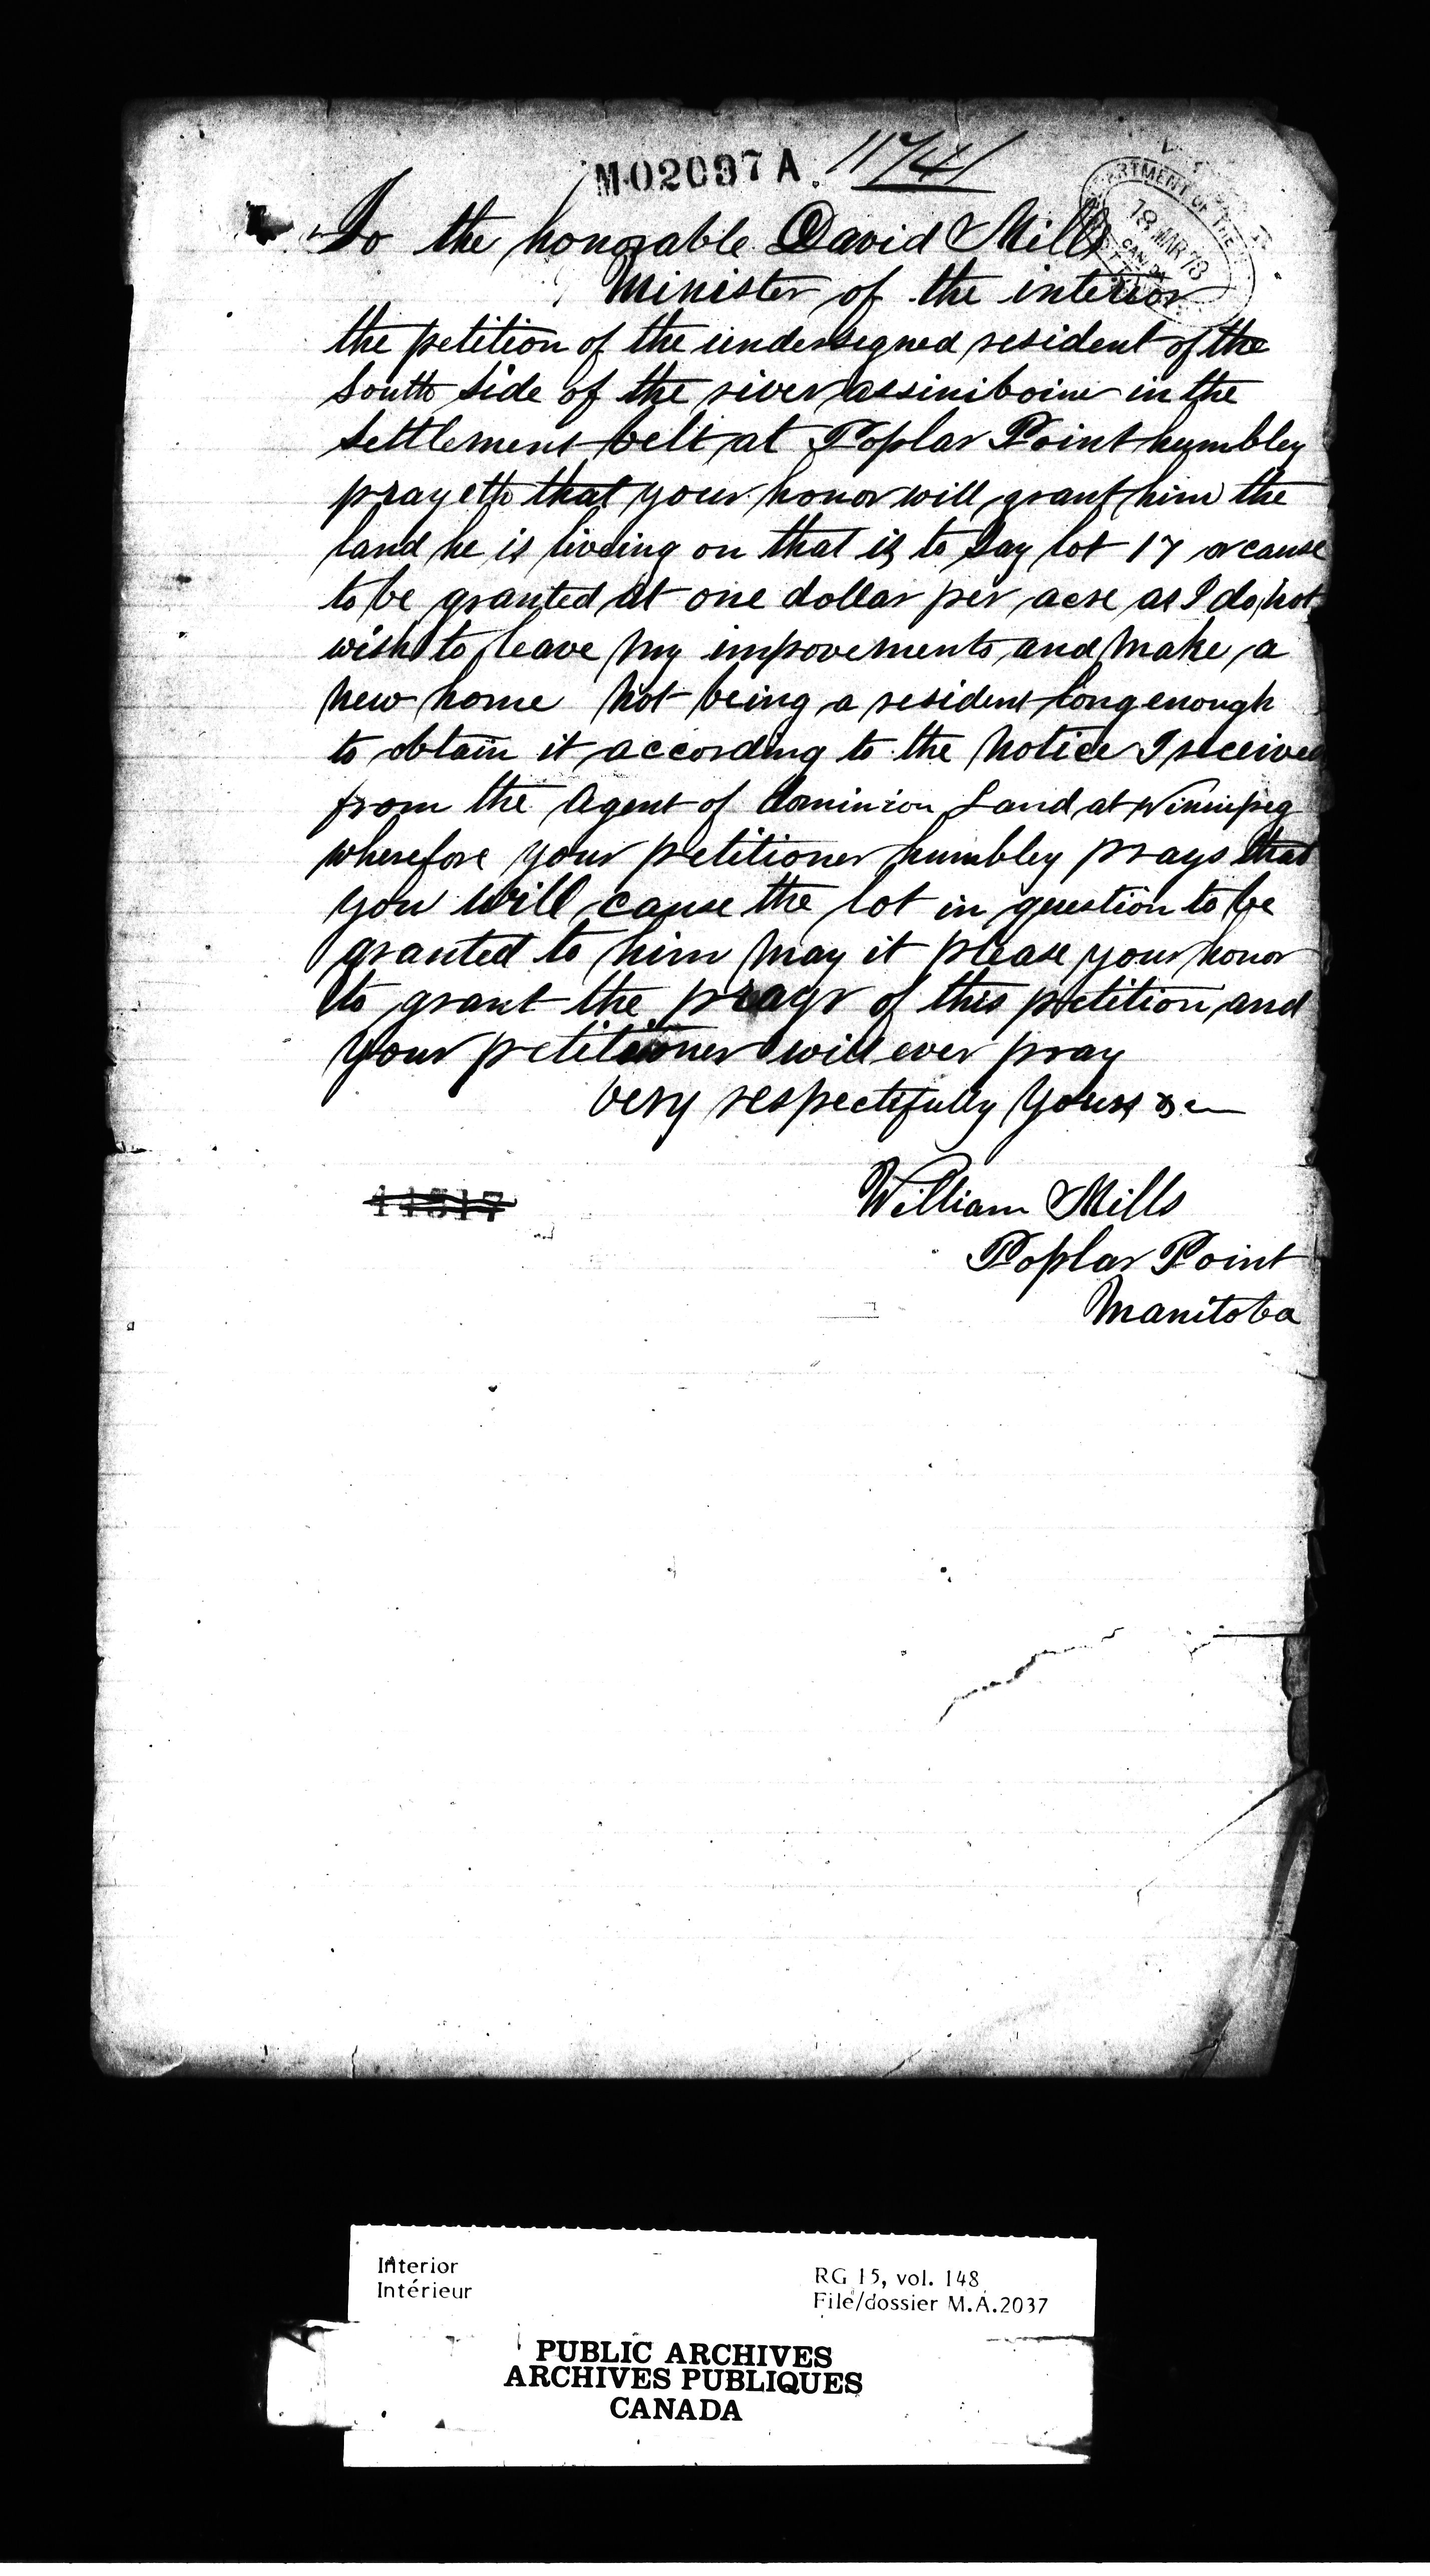 M02037A. 1174/
DEPARTMENT OF THE
18 MAR 78
CANADA
To the honorable David Mills
Minister of the interior
the petition of the undersegned resident of the
South Side of the river assiniboine in the
Settlement belt at Poplar Point humbley
prayeth that your honor will grant him the
land he is liveing on that is to Say lot 17 or cause
to be granted at one dollar per acre as I do not
wish to leave my impovements and make a
new home not being a resident long enough
to obtain it according to the Notice I received
from the Agent of dominion Land at Winnipeg
wherefore your petitioner humbley prays that
you will cause the lot in question to be
granted to him may it please your honor
to grant the prayr of this petition and
your petitioner will ever pray
Very respectifully Yours &c
William Mills
11517
Poplar Point
Manitoba
Interior
Intérieur
RG 15, vol. 148
File/dossier M.A.2037
PUBLIC ARCHIVES
ARCHIVES PUBLIQUES
CANADA